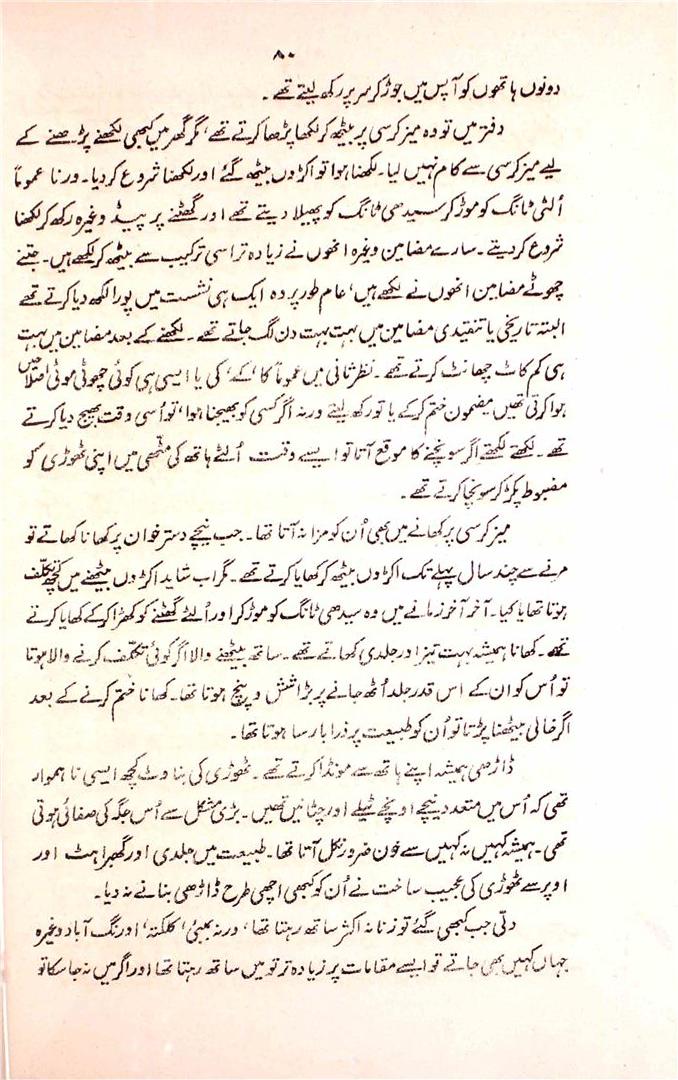 ۸۰
دونوں ہاتھوں کو آپس میں جوڑ کر سر پر رکھ لیتے تھے۔
دفتر میں تو وہ میز کرسی پر بیٹھ کر لکھا پڑھا کرتے تھے، مگر گھر میں کبھی لکھنے پڑھنے کے
لیے میز کرسی سے کام نہیں لیا۔ لکھنا ہوا تو اکڑوں بیٹھ گئے اور لکھنا شروع کر دیا۔ ورنا عموماً
اُلٹی ٹانگ کو موڑ کر سیدھی ٹانگ کو پھیلا دیتے تھے اور گھٹنے پر پیڈ وغیرہ رکھ کر لکھنا
شروع کر دیتے۔ سارے مضامین وغیرہ انھوں نے زیادہ تر اسی ترکیب سے بیٹھ کر لکھے ہیں۔ جتنے
چھوٹے مضامین انھوں نے لکھے ہیں، عام طور پر وہ ایک ہی نشست میں پورا لکھ دیا کرتے تھے
البتہ تاریخی یا تنقیدی مضامین میں بہت بہت دن لگ جاتے تھے۔ لکھنے کے بعد مضامین میں بہت
ہی کم کاٹ چھانٹ کرتے تھے۔ نظر ثانی میں عموماً کا، کے، کی یا ایسی ہی کوئی چھوٹی موٹی اصلاحیں
ہوا کرتی تھیں مضمون ختم کر کے یا تو رکھ لیتے ورنہ اگر کسی کو بھیجنا ہوا، تو اُسی وقت بھیج دیا کرتے
تھے۔ لکھتے لکھتے اگر سونچنے کا موقع آتا تو ایسے وقت اُلٹے ہاتھ کی مٹھی میں اپنی ٹھوڑی کو
مضبوط پکڑ کر سونچا کرتے تھے۔
میز کرسی پر کھانے میں بھی اُن کو مزا نہ آتا تھا۔ جب نیچے دسترخوان پر کھانا کھاتے تو
مرنے سے چند سال پہلے تک اکڑوں بیٹھ کر کھایا کرتے تھے۔ مگر اب شاید اکڑوں بیٹھنے میں کچھ تکلّف
ہوتا تھا یا کیا۔ آخر آخر زمانے میں وہ سیدھی ٹانگ کو موڑ کر اور اُلٹے گھٹنے کو کھڑا کر کے کھایا کرتے
تھے۔ کھانا ہمیشہ بہت تیز اور جلدی کھاتے تھے۔ ساتھ بیٹھنے والا اگر کوئی تکلّف کرنے والا ہوتا
تو اُس کو ان کے اس قدر جلد اُٹھ جانے پر بڑا شش و پنج ہوتا تھا۔ کھانا ختم کرنے کے بعد
اگر خالی بیٹھنا پڑتا تو اُن کو طبیعت پر ذرا بار سا ہوتا تھا۔
ڈاڑھی ہمیشہ اپنے ہاتھ سے مونڈا کرتے تھے۔ ٹھوڑی کی بناوٹ کچھ ایسی نا ہموار
تھی کہ اُس میں متعدد نیچے اونچے ٹیلے اور چٹانیں تھیں۔ بڑی مشکل سے اُس جگہ کی صفائی ہوتی
تھی۔ ہمیشہ کہیں نہ کہیں سے خون ضرور نکل آتا تھا۔ طبیعت میں جلدی اور گھبراہٹ اور
اوپر سے ٹھوڑی کی عجیب ساخت نے اُن کو کبھی اچھی طرح ڈاڑھی بنانے نہ دیا۔
دتی جب کبھی گئے تو زنانہ اکثر ساتھ رہتا تھا، ورنہ بمبئی، کلکتہ، اورنگ آباد وغیرہ
جہاں کہیں بھی جاتے تو ایسے مقامات پر زیادہ تر تو میں ساتھ رہتا تھا اور اگر میں نہ جا سکا تو